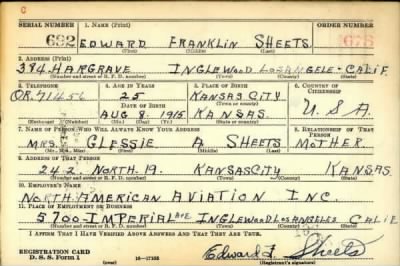 C
SERIAL NUMBER 1. NAME (Print) ORDER NUMBER
682 EDWARD FRANKLIN SHEETS
(First) (Middle) (Last)
2. ADDRESS (Print)
384 HARGRAVE INGLEWOOD LOS ANGELE- CALIF
(Number and street or R. F. D. number) (Town) (County) (State)
3. TELEPHONE 4. AGE IN YEARS 5. PLACE OF BIRTH 6. COUNTRY OF CITIZENSHIP
OR. 71456 25 KANSAS CITY
(Town or county)
DATE OF BIRTH U.S.A.
AUG. 8. 1915 KANSAS.
(Exchange) (Number) (Mo.) (Day) (Yr.) (State or country)
7. NAME OF PERSON WHO WILL ALWAYS KNOW YOUR ADDRESS 8. RELATIONSHIP OF THAT PERSON
MRS. GLESSIE A SHEETS MOTHER.
(Mr., Mrs., Miss) (First) (Middle) (Last)
9. ADDRESS OF THAT PERSON
242. NORTH. 19. KANSAS CITY KANSAS.
(Number and street or R. F. D. number) (Town) (County) (State)
10. EMPLOYER'S NAME
NORTH AMERICAN AVIATION INC.
11. PLACE OF EMPLOYMENT OR BUSINESS
5700-IMPERIAL AVE INGLEWOOD LOS ANGELES CALIF
(Number and street or R. F. D. number) (Town) (County) (State)
I AFFIRM THAT I HAVE VERIFIED ABOVE ANSWERS AND THAT THEY ARE TRUE.
REGISTRATION CARD
D. S. S. Form 1 (over) 16-17105 Edward F. Sheets
(Registrant's signature)